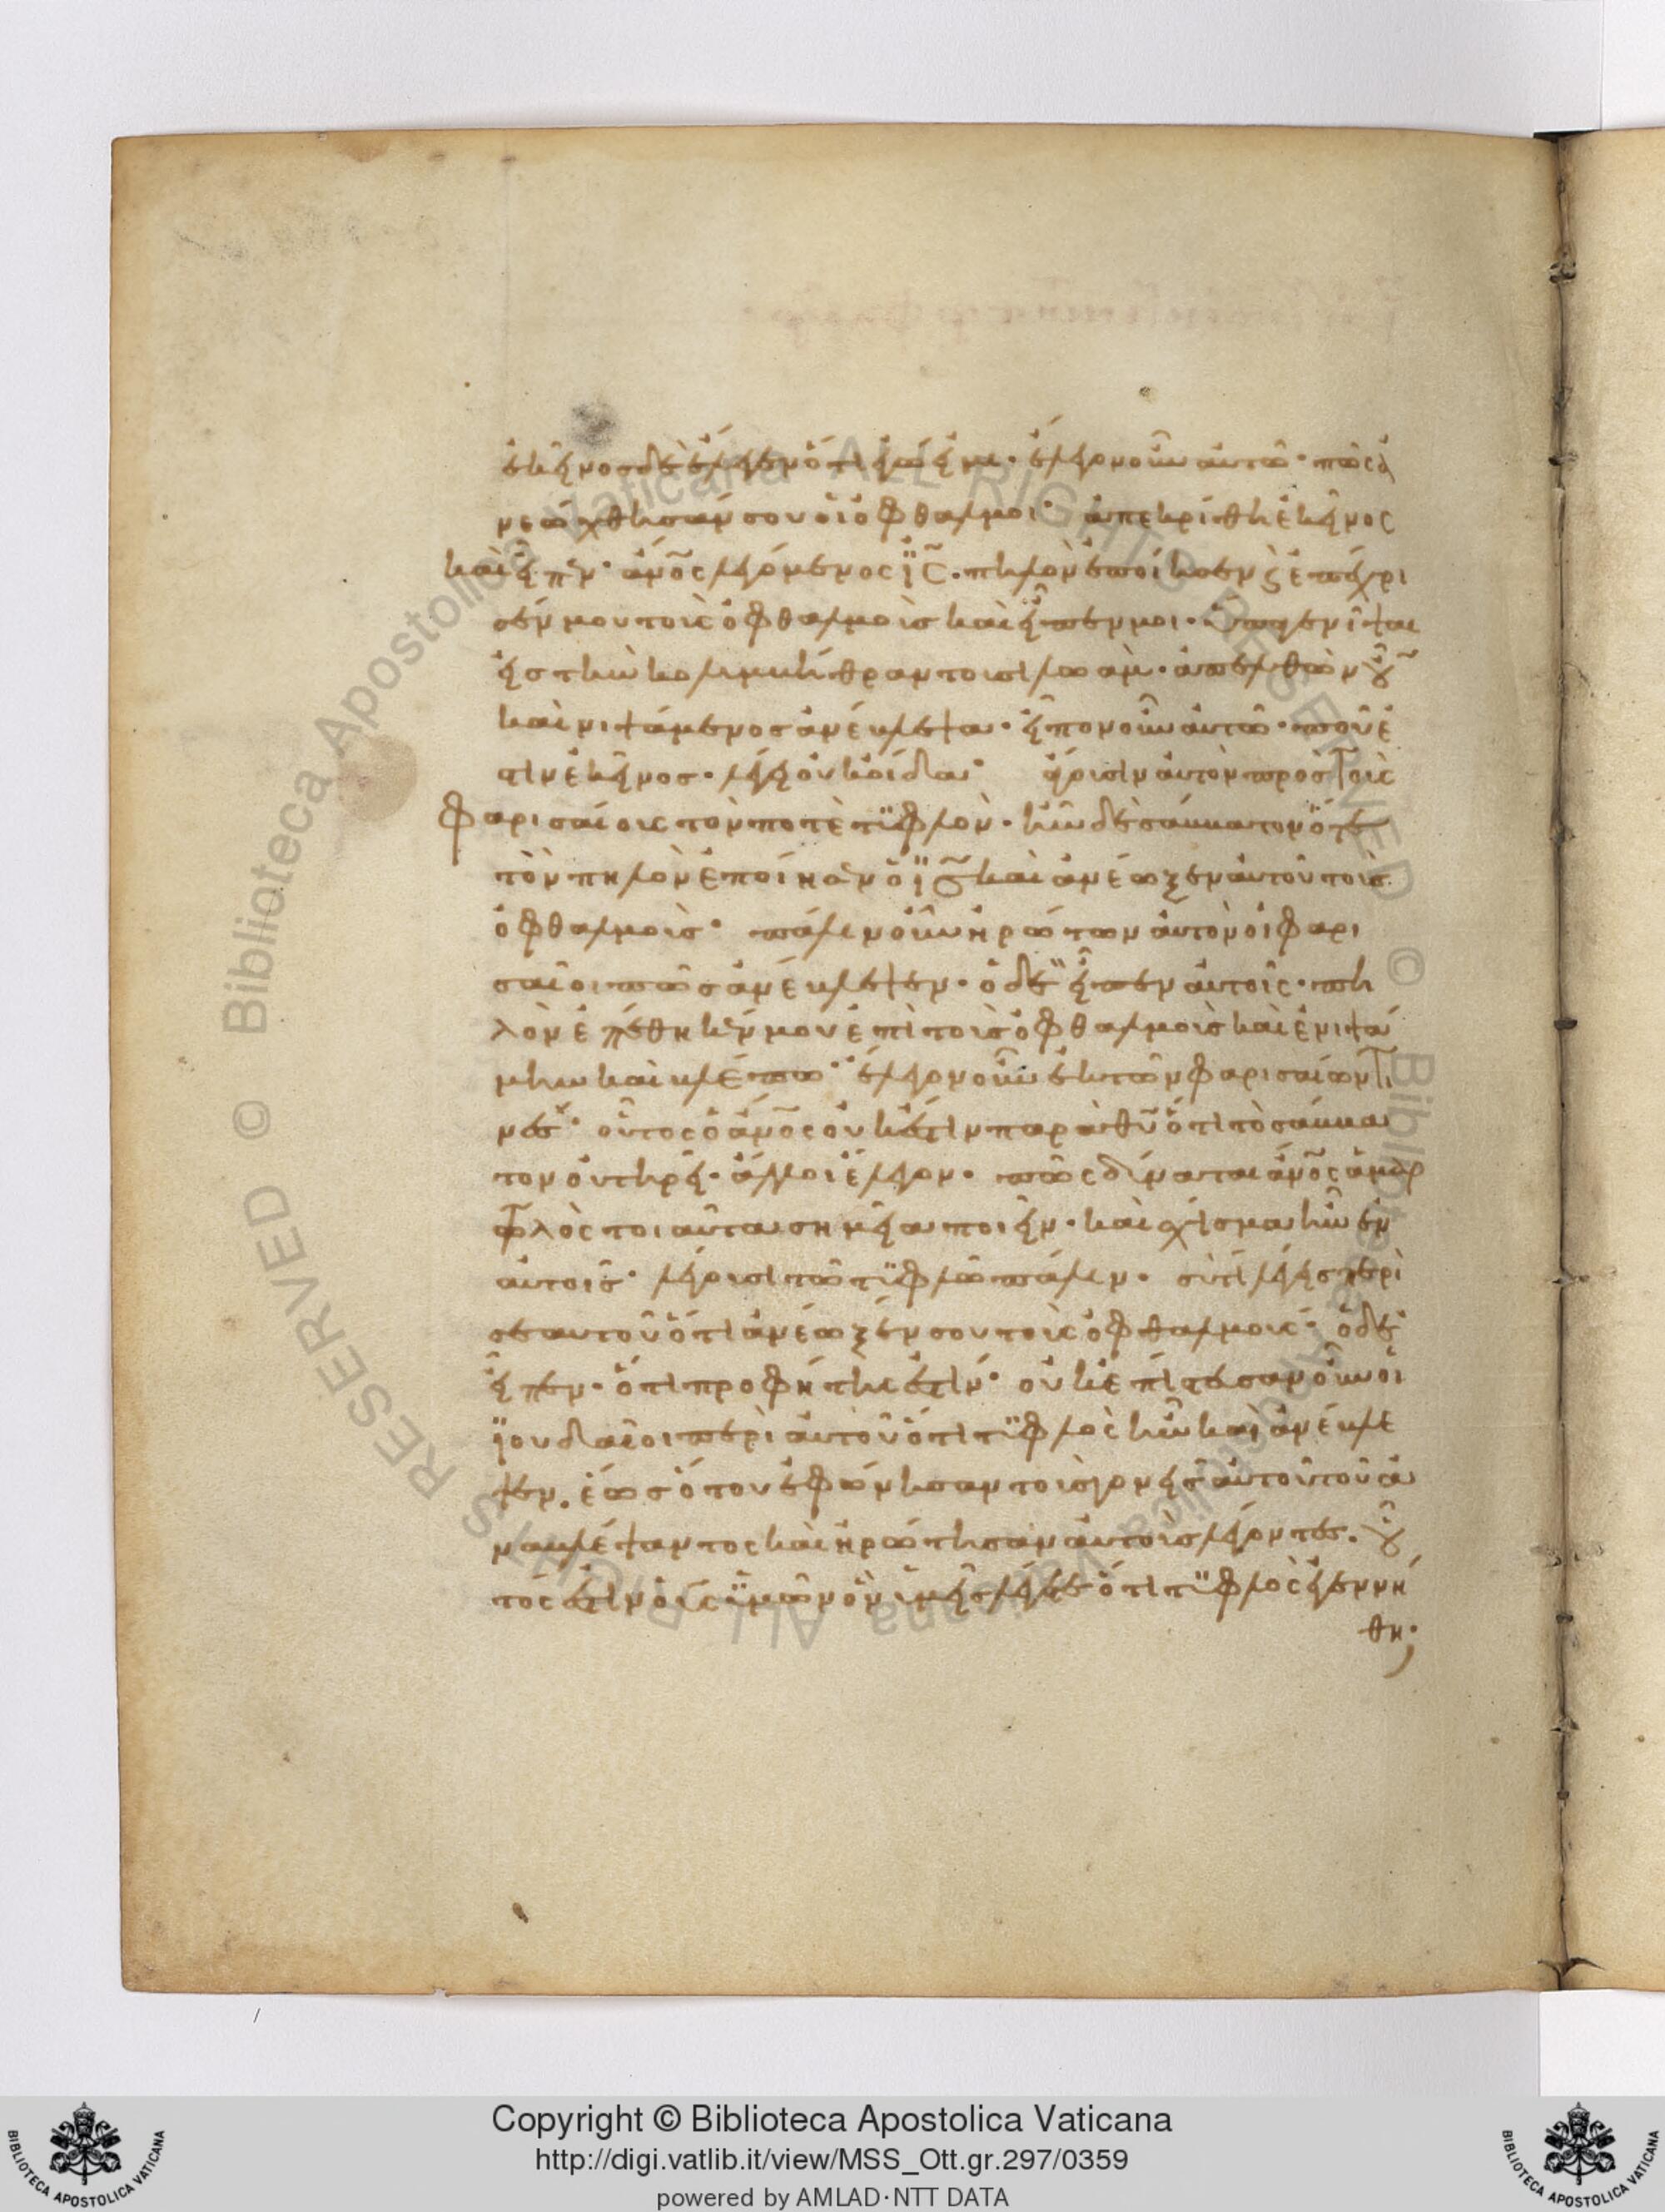 ἐκεῖνος δὲ ἔλεγεν ὅτι ἐγώ εἰμι· ἔλεγον οὖν αὐτῶ· πῶς ἀ
νεώχθησάν σου οἱ ὀφθαλμοί· ἀπεκρίθη ἐκεῖνος
καὶ εἶπεν· ἄνος λεγόμενος ἰς· πηλὸν ἐποίησεν καὶ ἐπέχρι
σέν μου τοὺς ὀφθαλμοὺς καὶ εἶπεν μοι· ὕπαγε νίψαι
εἰς τὴν κολυμβήθραν τοῦ σιλωάμ· ἀπελθὼν οὖν
καὶ νιψάμενος ἀνέβλεψα· εἶπον οὖν αὐτῶ· ποῦ ἐ
στιν ἐκεῖνος· λέγει οὐκ οἶδα· ἄγουσιν αὐτὸν πρὸς τοὺς
φαρισαίους τόν ποτε τυφλόν· ἦν δὲ σάββατον ὅτε
τὸν πηλὸν ἐποίησεν ὁ ἰς καὶ ἀνέωξεν αὐτοῦ τοὺς
ὀφθαλμούς· πάλιν οὖν ἠρώτων αὐτὸν οἱ φαρι
σαῖοι πῶς ἀνέβλεψεν· ὁ δὲ εἶπεν αὐτοῖς· πη
λὸν ἐπέθηκέν μου ἐπὶ τοὺς ὀφθαλμοὺς καὶ ἐνιψά
μην καὶ βλέπω· ἔλεγον οὖν ἐκ τῶν φαρισαίων τι
νές· οὗτος ὁ ἄνος οὐκ ἔστιν παρὰ θυ ὅτι τὸ σάββα
τον οὐ τηρεῖ· ἄλλοι ἔλεγον· πῶς δύναται ἄνος ἁμαρ
τωλὸς τοιαῦτα σημεῖα ποιεῖν· καὶ σχίσμα ἦν ἐν
αὐτοῖς· λέγουσι τῶ τυφλῶ πάλιν· σὺ τί λέγεις περὶ
σεαυτοῦ ὅτι ἀνέωξέν σου τοὺς ὀφθαλμούς· ὁ δὲ
εἶπεν· ὅτι προφήτης ἐστίν· οὐκ ἐπίστευσαν οὖν οἱ
ἰουδαῖοι περὶ αὐτοῦ ὅτι τυφλὸς ἦν καὶ ἀνέβλε
ψεν· ἕως ὅτου ἐφώνησαν τοὺς γονεῖς αὐτοῦ τοῦ ἀ
ναβλέψαντος καὶ ἠρώτησαν αὐτοὺς λέγοντες· οὗ
τός ἐστιν ὁ υἱς ὑμῶν ὃν ὑμεῖς λέγετε ὅτι τυφλὸς ἐγεννή
θη;
Copyright © Biblioteca Apostolica Vaticana
http://digi.vatlib.it/view/MSS_Ott.gr.297/0359
powered by AMLAD·NTT DATA